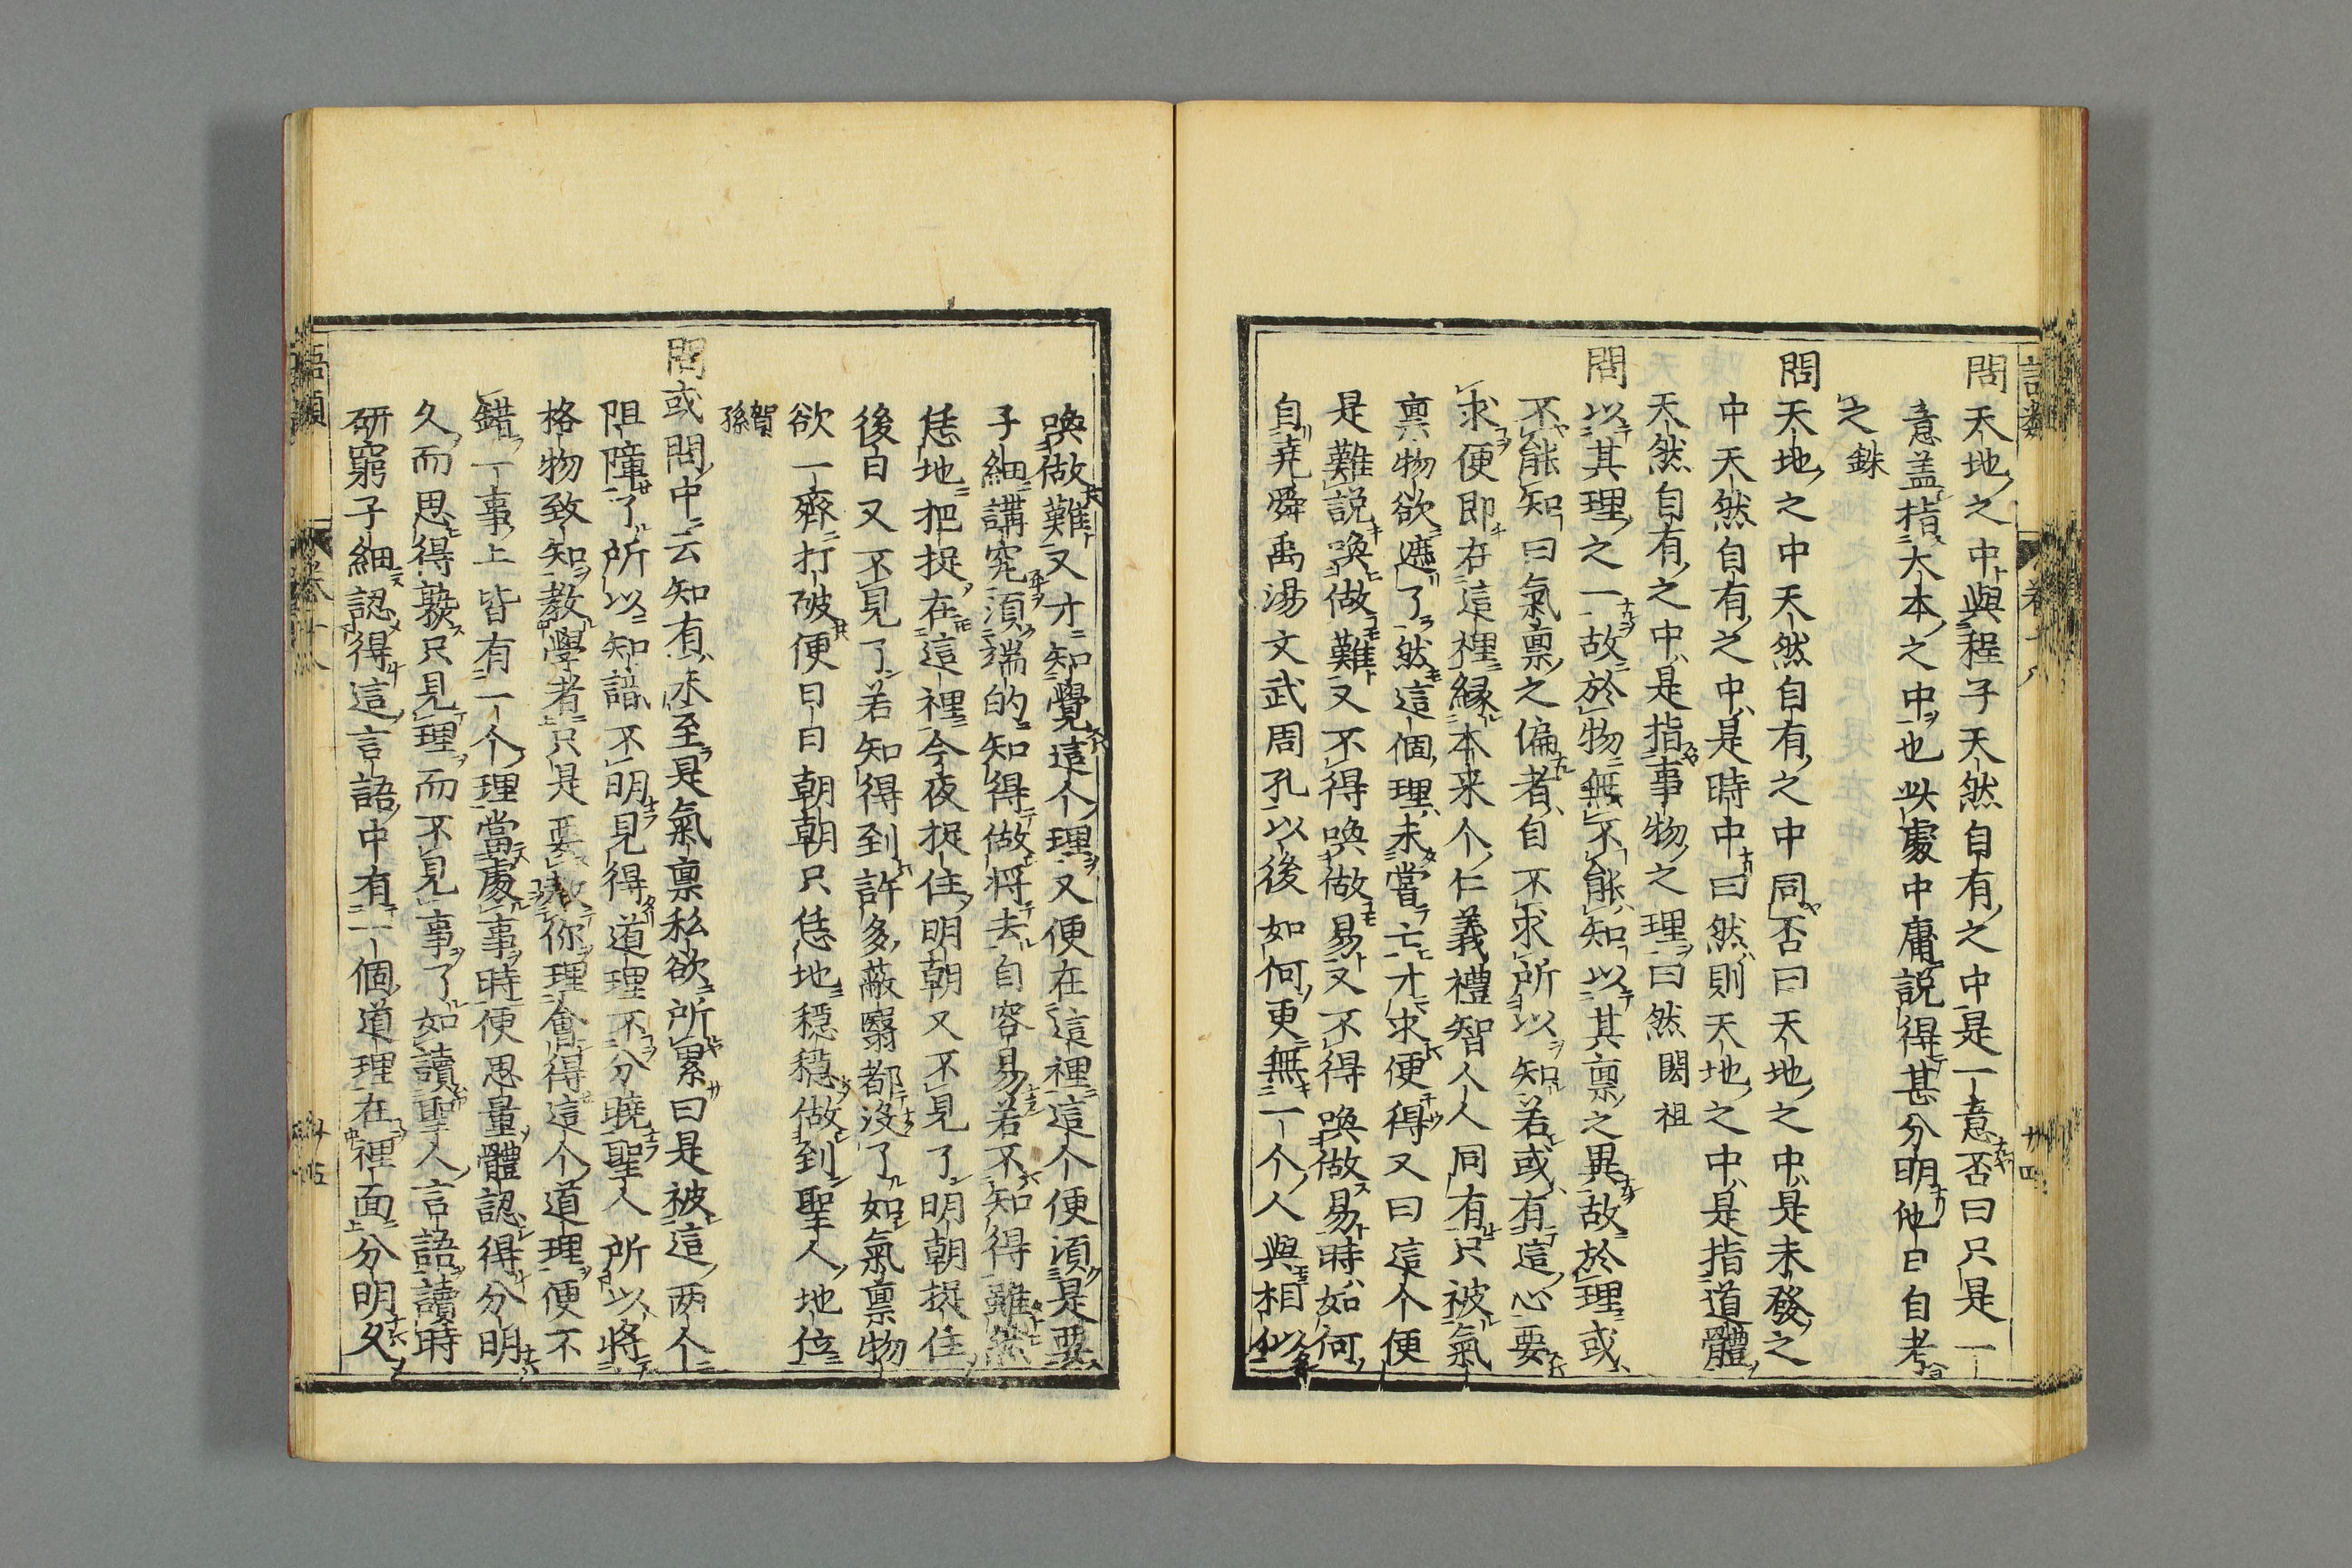 語類
卷十八
廿四
問天地之中與程子天然自有之中是一意否曰只是一
意蓋指大本之中也此處中庸説得甚分明他日自考
之銖
問天地之中天然自有之中同否曰天地之中是未發之
中天然自有之中是時中曰然則天地之中是指道體
天然自有之中是指事物之理曰然閎祖
問以其理之一故於物無不能知以其禀之異故於理或
不能知曰氣禀之偏者自不求所以知若或有這心要
求便即在這裡緣本来个仁義禮智人人同有只被氣
禀物欲遮了然這個理未嘗亡才求便得又曰這个便
是難説喚做難又不得喚做易又不得喚做易時如何
自堯舜禹湯文武周孔以後如何更無一个人與相似
喚做難又才知覺這个理又便在這裡這个便須是要
子細講究須端的知得做将去自容易若不知得雖然
恁地把捉在這裡今夜捉住明朝又不見了明朝捉住
後日又不見了若知得到許多蔽翳都沒了如氣禀物
欲一齊打破便日日朝朝只恁地穩穩做到聖人地位
賀孫
問或問中云知有未至是氣禀私欲所累曰是被這两个
阻障了所以知識不明見得道理不分曉聖人所以將
格物致知教學者只是要教你理會得這个道理便不
錯一事上皆有一个理當處事時便思量體認得分明
久而思得熟只見理而不見事了如讀聖人言語讀時
研窮子細認得這言語中有一個道理在裡面分明久
語類
卷十八